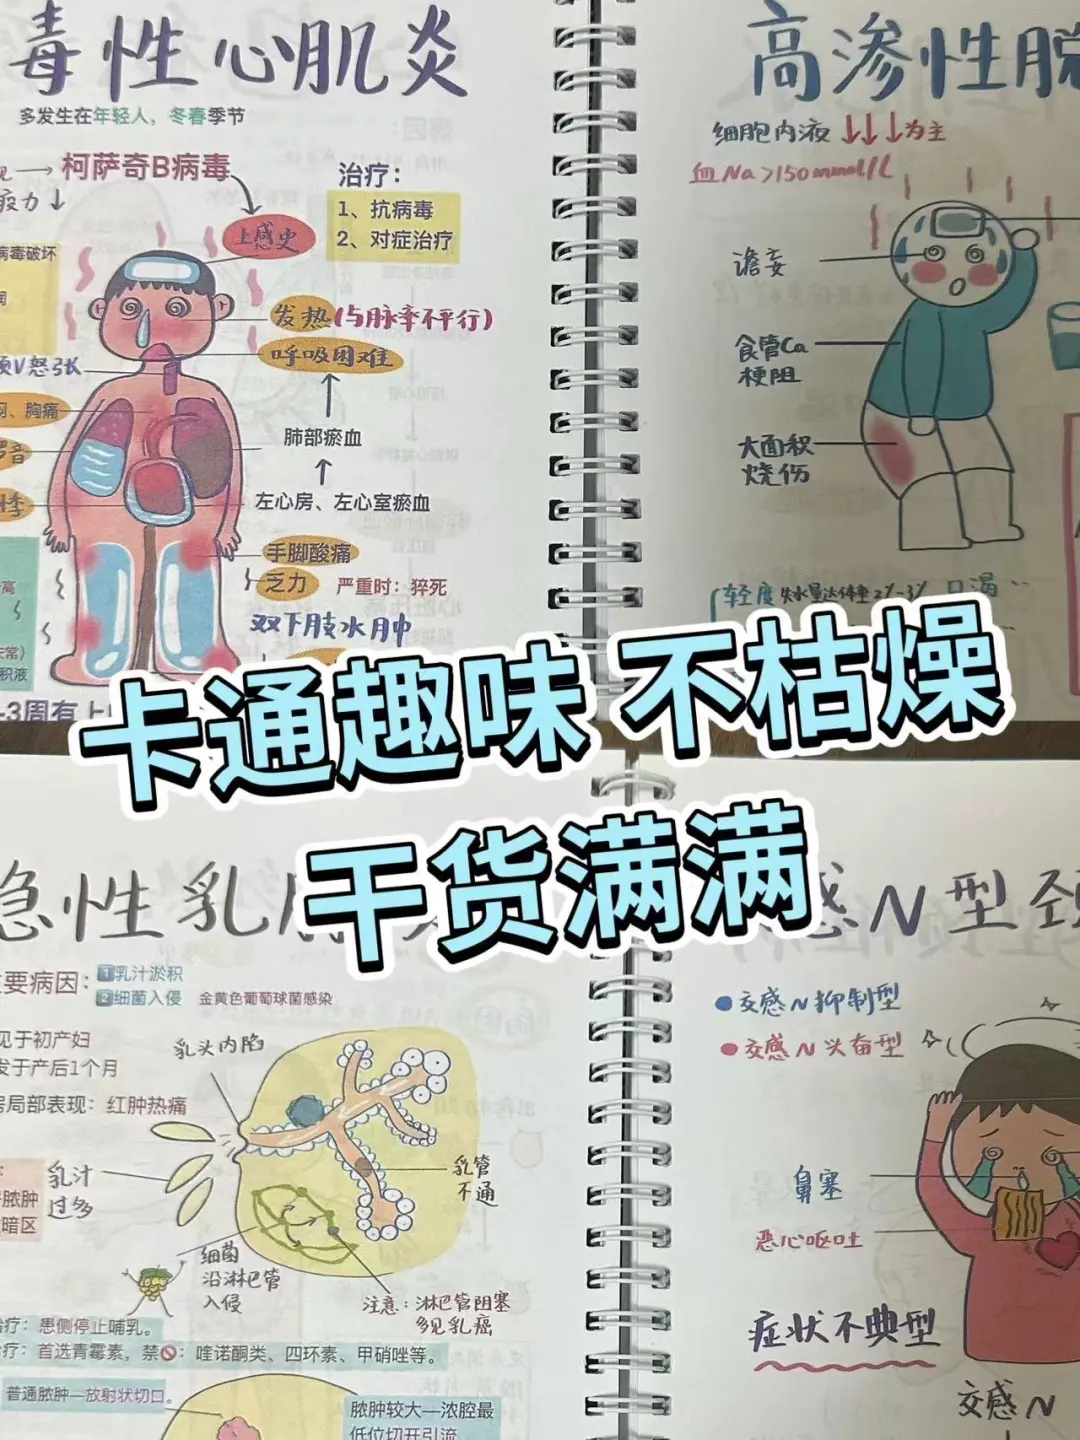 毒性心肌炎
多发生在年轻人，冬春季节
柯萨奇B病毒
疫力↓
治疗：
1、抗病毒
2、对症治疗
上感史
病毒破坏
发热(与脉率不平行)
呼吸困难
V怒张
、胸痛
音
悸
肺部瘀血
左心房、左心室瘀血
手脚酸痛
乏力
严重时：猝死
双下肢水肿
高
积液
-3周有上
高渗性脱
细胞内液↓↓↓为主
血Na>150mmol/L
谵妄
食管Ca
梗阻
大面积
烧伤
轻度 失水量达体重2%-3% 口渴
卡通趣味 不枯燥
干货满满
急性乳
要病因：
1乳汁淤积
2细菌入侵 金黄色葡萄球菌感染
见于初产妇
发于产后1个月
局部表现：红肿热痛
乳头内陷
乳汁
过多
脓肿
暗区
乳管
不通
细菌
沿淋巴管
入侵
注意：淋巴管阻塞
多见乳癌
治疗：患侧停止哺乳。
治疗：首选青霉素，禁🚫：喹诺酮类、四环素、甲硝唑等。
普通脓肿—放射状切口。
脓肿较大—浓腔最
低位切开引流
感N型颈
交感N抑制型
交感N兴奋型
鼻塞
恶心呕吐
症状不典型
交感N